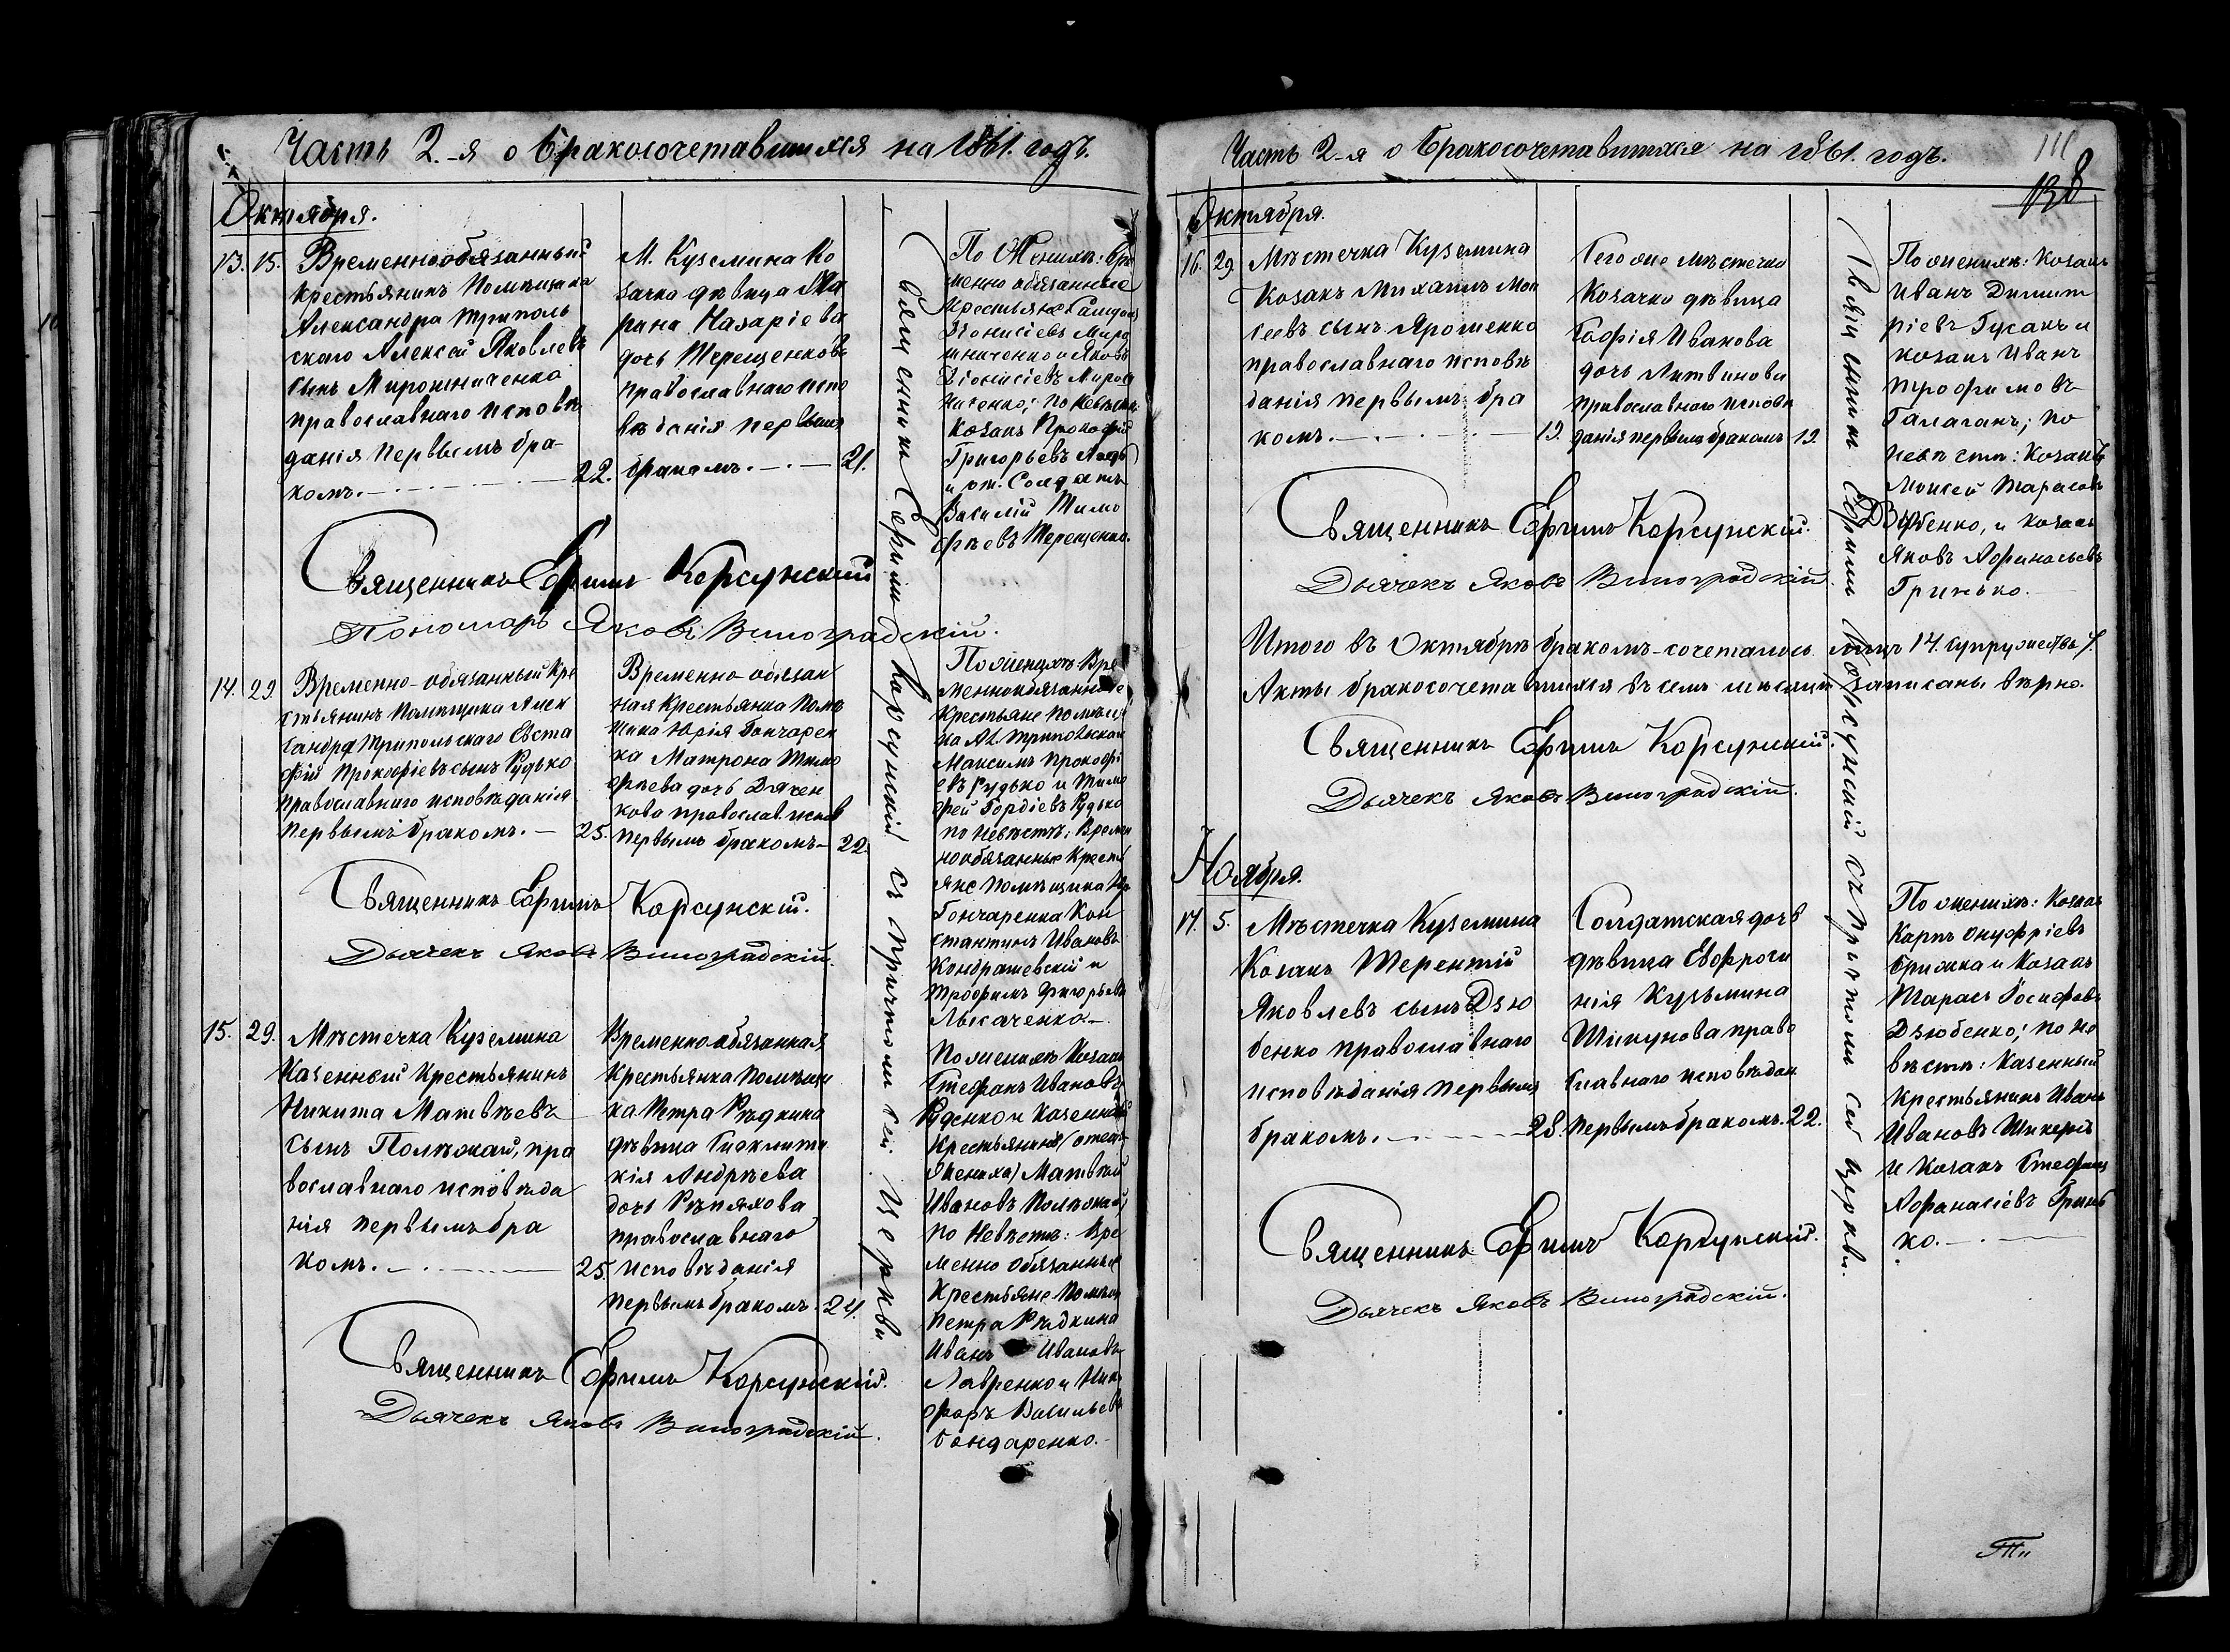 Часть 2.-я о бракосочетавшихся на 1861. годъ.
Октября.
13. 15. Временнообязанный
крестьянинъ Помѣщика
Александра Триполь
скаго Алексѣй Яковлевъ
сынъ Мирошниченко
православнаго исповѣ
данія первымъ бра-
комъ. 22.
М. Куземина Ко
зачка дѣвица Ма
рина Назаріева
дочь Терещенкова
православнаго испо
вѣданія первымъ
бракомъ. 21.
По Женихѣ: Вре
менно обязанные
Крестьяне
Діонисіевъ Миро
шниченко и Яковъ
Діонисіевъ Мирош
ниченко; по Невѣстѣ:
Козакъ Прокофій
Григорьевъ
и от. Солдатъ
Василій Тимо
фѣевъ Терещенко.
Священникъ Ефимъ Корсунскій
Пономарь Яковъ Виноградскій.
14. 29. Временно-обязанный Кре
стьянинъ Помѣщика Алек
сандра Трипольскаго Евста
фій Прокофіевъ сынъ Рудько
православнаго исповѣданія
первымъ бракомъ. 25.
Временно обязан
ная Крестьянка Помѣ
щика Юрія Гончарен
ка Матрона Тимо
фѣева дочь Дячен
кова православ. испов
первымъ бракомъ 22.
По женихѣ: Вре
меннообязанные
Крестьяне помѣщи
ка Ал. Трипольскаго
Максимъ Прокофі
евъ Рудько и Тимо
фей Гордіевъ Рудько
по невѣстѣ: Времен
нообязанные Кресть
яне помѣщика Юр
Гончаренка Кон
стантинъ Ивановъ
Кондрашевскій и
Трофимъ Григорьевъ
Лысаченко
Священникъ Ефимъ Корсунскій.
Дьячекъ Яковъ Виноградскій.
15. 29. Мѣстечка Куземина
Казенный Крестьянинъ
Никита Матвѣевъ
сынъ Полѣжай, пра
вославнаго исповѣда
нія первымъ бра
комъ. 25.
Временнообязанная
крестьянка помѣщи
ка Петра Рѣдкина
дѣвица Гликѣ
рія Андрѣева
дочь Рѣпяхова
православнаго
исповѣданія
первымъ бракомъ. 24.
По женихѣ Козакъ
Стефанъ Ивановъ
Руденко и Казенный
Крестьянинъ (отецъ
жениха) Матвѣй
Ивановъ Полѣжай;
по Невѣстѣ: Вре
менно обязанные
Крестьяне Помѣщ
Петра Рѣдкина
Иванъ Ивановъ
Лавренко и Ник
оръ Васильевъ
Бондаренко.
Священникъ Ефимъ Корсунскій.
Дьячекъ Яковъ Виноградскій.
Священникъ Ефимъ Корсунскій съ причтомъ сей Церкви
Часть 2-я о бракосочетавшихся на 1861. годъ.
111
138
Октября.
16. 29. Мѣстечка Куземина
Козакъ Михаилъ Мои
сеевъ сынъ Ярошенко
православнаго исповѣ
данія первымъ бра
комъ. 19.
Того же мѣстечка
Козачка дѣвица
Софія Иванова
дочь Литвинова
православнаго исповѣ
данія первымъ бракомъ 19.
По женихѣ: Козакъ
Иванъ Димит
ріевъ Гусакъ и
козакъ Иванъ
Трофимовъ
Галаганъ; по
невѣстѣ: Козакъ
Моисей Тарасовъ
Дзюбенко, и козакъ
Яковъ Афанасьевъ
Гринько.
Священникъ Ефимъ Корсунскій.
Дьячекъ Яковъ Виноградскій
Итого въ Октябрѣ бракомъ-сочеталось лицъ 14. супружествъ 7.
Акты бракосочетавшихся въ семъ мѣсяцѣ записаны вѣрно.
Священникъ Ефимъ Корсунскій.
Дьячекъ Яковъ Виноградскій.
Ноября.
17. 5. Мѣстечка Куземина
Козакъ Терентій
Яковлевъ сынъ Дзю
бенко православнаго
исповѣданія первымъ
бракомъ. 28.
Солдатская дочь
дѣвица Евфроси
нія Кузьмина
Шикунова право
славнаго исповѣдан
первымъ бракомъ. 22.
По женихѣ: Козакъ
Карпъ Онуфріевъ
Брижка и Козакъ
Тарасъ Іосифовъ
Дзюбенко; по не
вѣстѣ: Казенный
Крестьянинъ Иванъ
Ивановъ
и Козакъ Стефанъ
Афанасіевъ Гринь
ко.
Священникъ Ефимъ Корсунскій.
Дьячекъ Яковъ Виноградскій.
Священникъ Ефимъ Корсунскій съ причтомъ сей церкви.